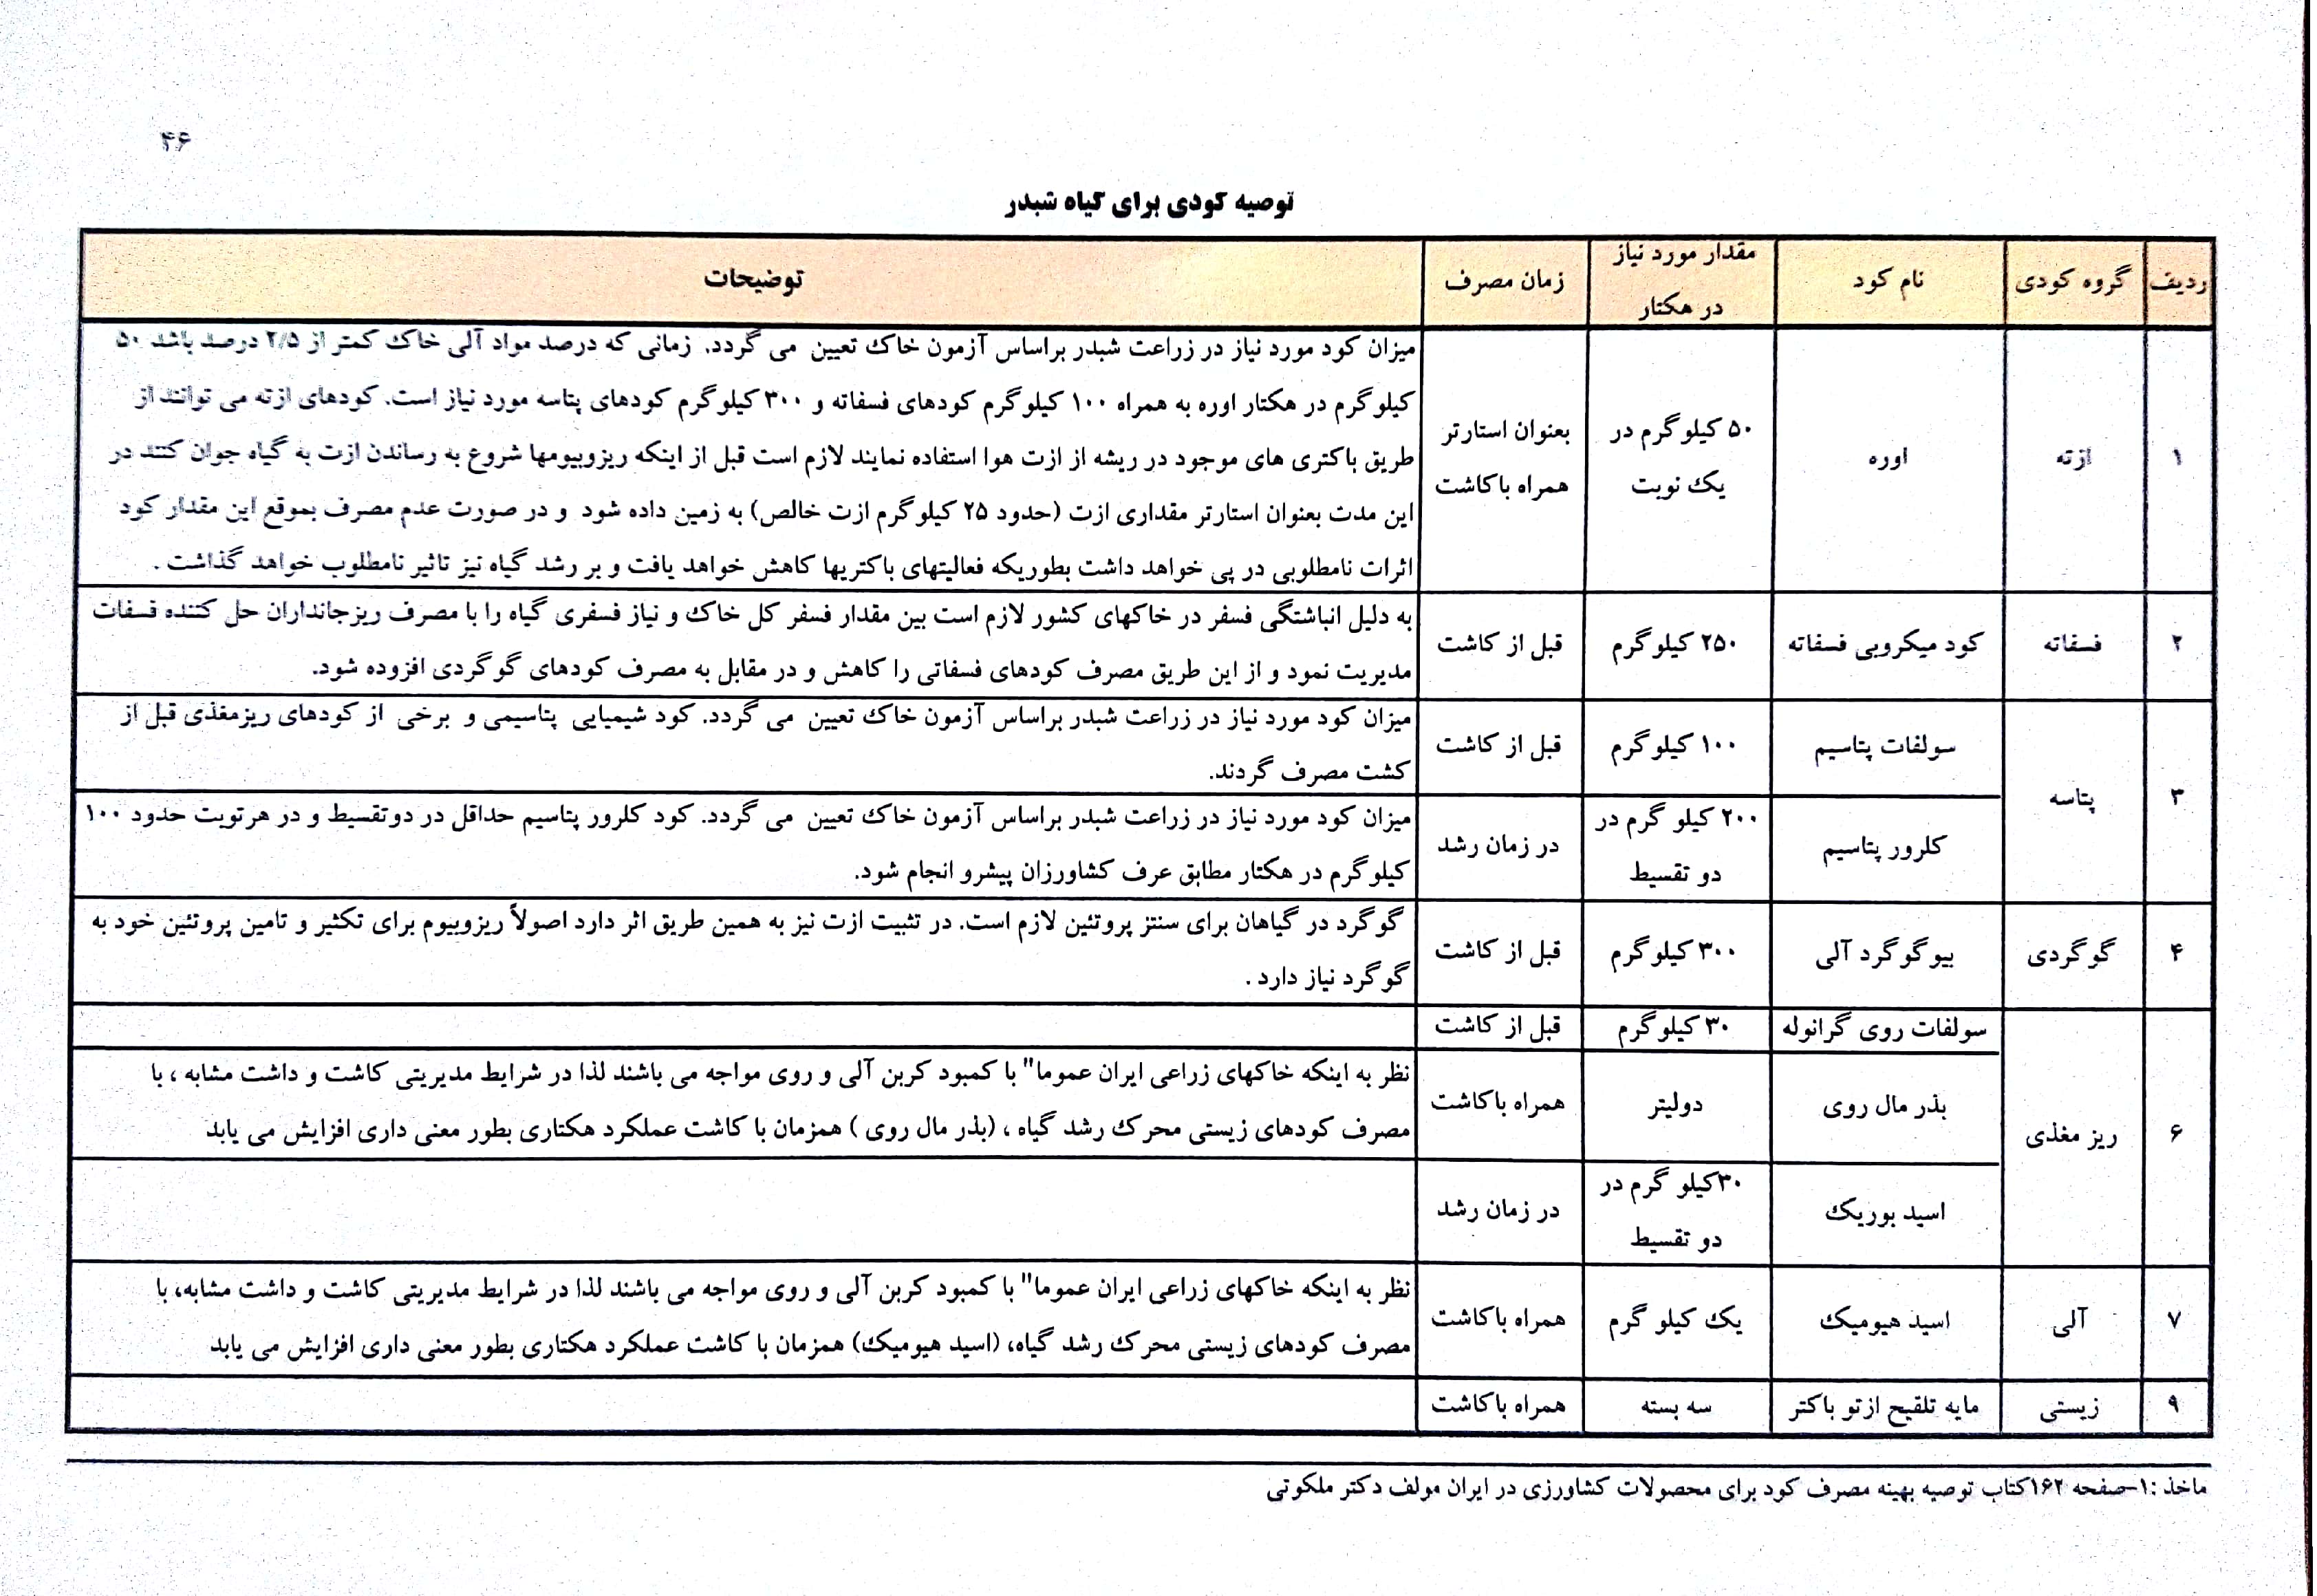 ۴۶
توصیه کودی برای گیاه شبدر
ردیف گروه کودی نام کود مقدار مورد نیاز در هکتار زمان مصرف توضیحات
۱ ازته اوره ۵۰ کیلوگرم در یک نوبت بعنوان استارتر همراه باکاشت
میزان کود مورد نیاز در زراعت شبدر براساس آزمون خاک تعیین می گردد. زمانی که درصد مواد آلی خاک کمتر از ۲/۵ درصد باشد ۵۰
کیلوگرم در هکتار اوره به همراه ۱۰۰ کیلوگرم کودهای فسفاته و ۳۰۰ کیلوگرم کودهای پتاسه مورد نیاز است. کودهای ازته می توانند از
طریق باکتری های موجود در ریشه از ازت هوا استفاده نمایند لازم است قبل از اینکه ریزوبیومها شروع به رساندن ازت به گیاه جوان کنند در
این مدت بعنوان استارتر مقداری ازت (حدود ۲۵ کیلوگرم ازت خالص) به زمین داده شود و در صورت عدم مصرف بموقع این مقدار کود
اثرات نامطلوبی در پی خواهد داشت بطوریکه فعالیتهای باکتریها کاهش خواهد یافت و بر رشد گیاه نیز تاثیر نامطلوب خواهد گذاشت .
۲ فسفاته کود میکروبی فسفاته ۲۵۰ کیلوگرم قبل از کاشت
به دلیل انباشتگی فسفر در خاکهای کشور لازم است بین مقدار فسفر کل خاک و نیاز فسفری گیاه را با مصرف ریزجانداران حل کننده فسفات
مدیریت نمود و از این طریق مصرف کودهای فسفاتی را کاهش و در مقابل به مصرف کودهای گوگردی افزوده شود.
۳ پتاسه سولفات پتاسیم ۱۰۰ کیلوگرم قبل از کاشت
میزان کود مورد نیاز در زراعت شبدر براساس آزمون خاک تعیین می گردد. کود شیمیایی پتاسیمی و برخی از کودهای ریزمغذی قبل از
کشت مصرف گردند.
کلرور پتاسیم ۲۰۰ کیلو گرم در دو تقسیط در زمان رشد
میزان کود مورد نیاز در زراعت شبدر براساس آزمون خاک تعیین می گردد. کود کلرور پتاسیم حداقل در دوتقسیط و در هرتوبت حدود ۱۰۰
کیلوگرم در هکتار مطابق عرف کشاورزان پیشرو انجام شود.
۴ گوگردی بیوگوگرد آلی ۳۰۰ کیلوگرم قبل از کاشت
گوگرد در گیاهان برای سنتز پروتئین لازم است. در تثبیت ازت نیز به همین طریق اثر دارد اصولاً ریزوبیوم برای تکثیر و تامین پروتئین خود به
گوگرد نیاز دارد .
۶ ریز مغذی سولفات روی گرانوله ۳۰ کیلوگرم قبل از کاشت
بذر مال روی دولیتر همراه باکاشت
نظر به اینکه خاکهای زراعی ایران عموما" با کمبود کربن آلی و روی مواجه می باشند لذا در شرایط مدیریتی کاشت و داشت مشابه ، با
مصرف کودهای زیستی محرک رشد گیاه ، (بذر مال روی ) همزمان با کاشت عملکرد هکتاری بطور معنی داری افزایش می یابد
اسید بوریک ۳۰کیلو گرم در دو تقسیط در زمان رشد
۷ آلی اسید هیومیک یک کیلو گرم همراه باکاشت
نظر به اینکه خاکهای زراعی ایران عموما" با کمبود کربن آلی و روی مواجه می باشند لذا در شرایط مدیریتی کاشت و داشت مشابه، با
مصرف کودهای زیستی محرک رشد گیاه، (اسید هیومیک) همزمان با کاشت عملکرد هکتاری بطور معنی داری افزایش می یابد
۹ زیستی مایه تلقیح ازتو باکتر سه بسته همراه باکاشت
ماخذ :۱-صفحه ۱۶۲کتاب توصیه بهینه مصرف کود برای محصولات کشاورزی در ایران مولف دکتر ملکوتی